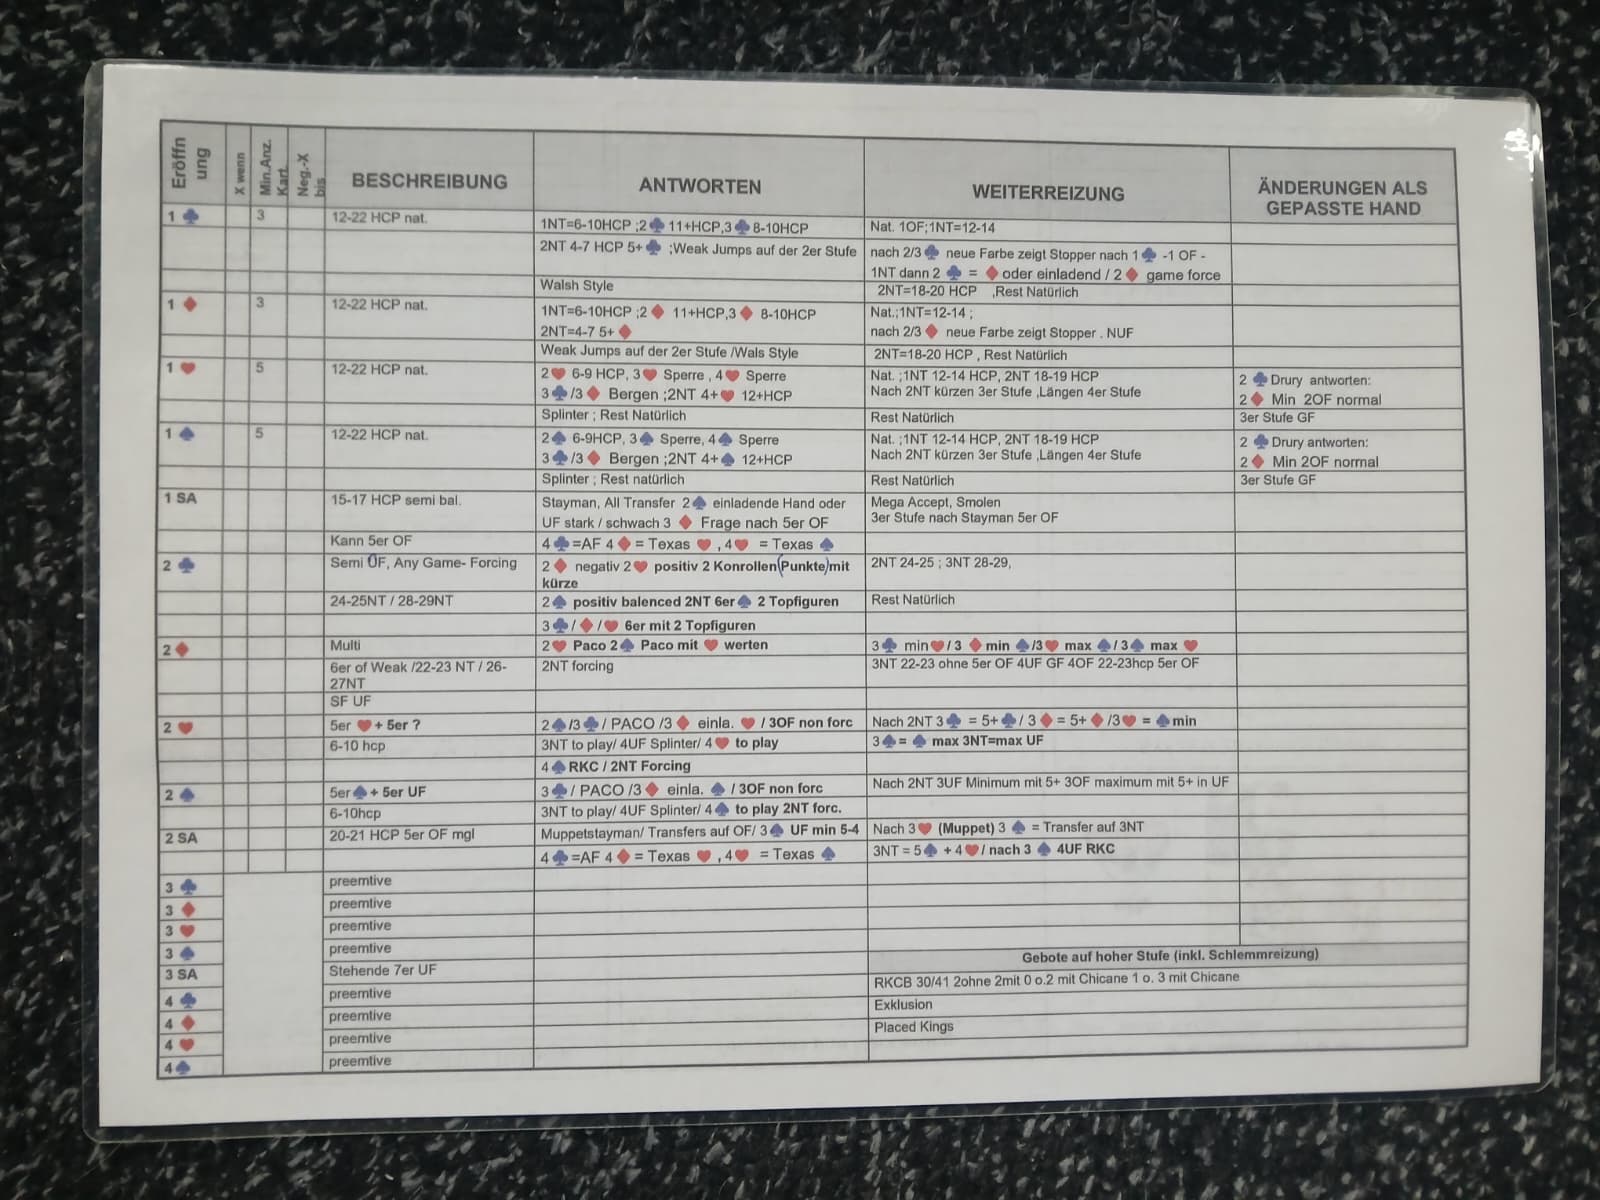 Eröffn
ung
X wenn
Min.Anz.
Kart.
Neg.-X
bis
BESCHREIBUNG
ANTWORTEN
WEITERREIZUNG
ÄNDERUNGEN ALS
GEPASSTE HAND
1 ♣ 3 12-22 HCP nat. 1NT=6-10HCP ;2♣ 11+HCP,3♣ 8-10HCP Nat. 1OF;1NT=12-14
2NT 4-7 HCP 5+♣ ;Weak Jumps auf der 2er Stufe
nach 2/3♣ neue Farbe zeigt Stopper nach 1♣ -1 OF -
1NT dann 2 ♣ = ♦ oder einladend / 2 ♦ game force
Walsh Style 2NT=18-20 HCP ,Rest Natürlich
1 ♦ 3 12-22 HCP nat. 1NT=6-10HCP ;2♦ 11+HCP,3♦ 8-10HCP Nat.;1NT=12-14 ;
2NT=4-7 5+♦ nach 2/3♦ neue Farbe zeigt Stopper . NUF
Weak Jumps auf der 2er Stufe /Wals Style 2NT=18-20 HCP , Rest Natürlich
1 ♥ 5 12-22 HCP nat. 2♥ 6-9 HCP, 3♥ Sperre , 4♥ Sperre Nat. ;1NT 12-14 HCP, 2NT 18-19 HCP 2 ♣Drury antworten:
3♣/3♦ Bergen ;2NT 4+♥ 12+HCP Nach 2NT kürzen 3er Stufe ,Längen 4er Stufe 2♦ Min 2OF normal
Splinter ; Rest Natürlich Rest Natürlich 3er Stufe GF
1 ♠ 5 12-22 HCP nat. 2♠ 6-9HCP, 3♠ Sperre, 4♠ Sperre Nat. ;1NT 12-14 HCP, 2NT 18-19 HCP 2 ♣Drury antworten:
3♣/3♦ Bergen ;2NT 4+♠ 12+HCP Nach 2NT kürzen 3er Stufe ,Längen 4er Stufe 2♦ Min 2OF normal
Splinter ; Rest natürlich Rest Natürlich 3er Stufe GF
1 SA 15-17 HCP semi bal. Stayman, All Transfer 2♠ einladende Hand oder Mega Accept, Smolen
UF stark / schwach 3 ♦ Frage nach 5er OF 3er Stufe nach Stayman 5er OF
Kann 5er OF 4♣=AF 4♦= Texas ♥ , 4♥ = Texas ♠
2 ♣ Semi OF, Any Game- Forcing 2♦ negativ 2♥ positiv 2 Konrollen(Punkte)mit 2NT 24-25 ; 3NT 28-29,
kürze
24-25NT / 28-29NT 2♠ positiv balenced 2NT 6er♠ 2 Topfiguren Rest Natürlich
3♣/♦/♥ 6er mit 2 Topfiguren
2♦ Multi 2♥ Paco 2♠ Paco mit ♥ werten 3♣ min♥/3 ♦ min ♠/3♥ max ♠/3♠ max ♥
6er of Weak /22-23 NT / 26- 2NT forcing 3NT 22-23 ohne 5er OF 4UF GF 4OF 22-23hcp 5er OF
27NT
SF UF
2 ♥ 5er ♥+ 5er ? 2♠/3♣/ PACO /3♦ einla. ♥ / 3OF non forc Nach 2NT 3♣ = 5+♣/ 3♦= 5+♦/3♥ = ♠min
6-10 hcp 3NT to play/ 4UF Splinter/ 4♥ to play 3♠= ♠ max 3NT=max UF
4♠RKC / 2NT Forcing
2 ♠ 5er♠+ 5er UF 3♣/ PACO /3♦ einla. ♠ / 3OF non forc Nach 2NT 3UF Minimum mit 5+ 3OF maximum mit 5+ in UF
6-10hcp 3NT to play/ 4UF Splinter/ 4♠ to play 2NT forc.
2 SA 20-21 HCP 5er OF mgl Muppetstayman/ Transfers auf OF/ 3♠ UF min 5-4 Nach 3♥ (Muppet) 3 ♠ = Transfer auf 3NT
4♣=AF 4♦= Texas ♥ , 4♥ = Texas ♠ 3NT = 5♠ + 4♥/ nach 3 ♠ 4UF RKC
3 ♣ preemtive
3 ♦ preemtive
3 ♥ preemtive
3 ♠ preemtive Gebote auf hoher Stufe (inkl. Schlemmreizung)
3 SA Stehende 7er UF RKCB 30/41 2ohne 2mit 0 o.2 mit Chicane 1 o. 3 mit Chicane
4 ♣ preemtive Exklusion
4 ♦ preemtive Placed Kings
4 ♥ preemtive
4♠ preemtive